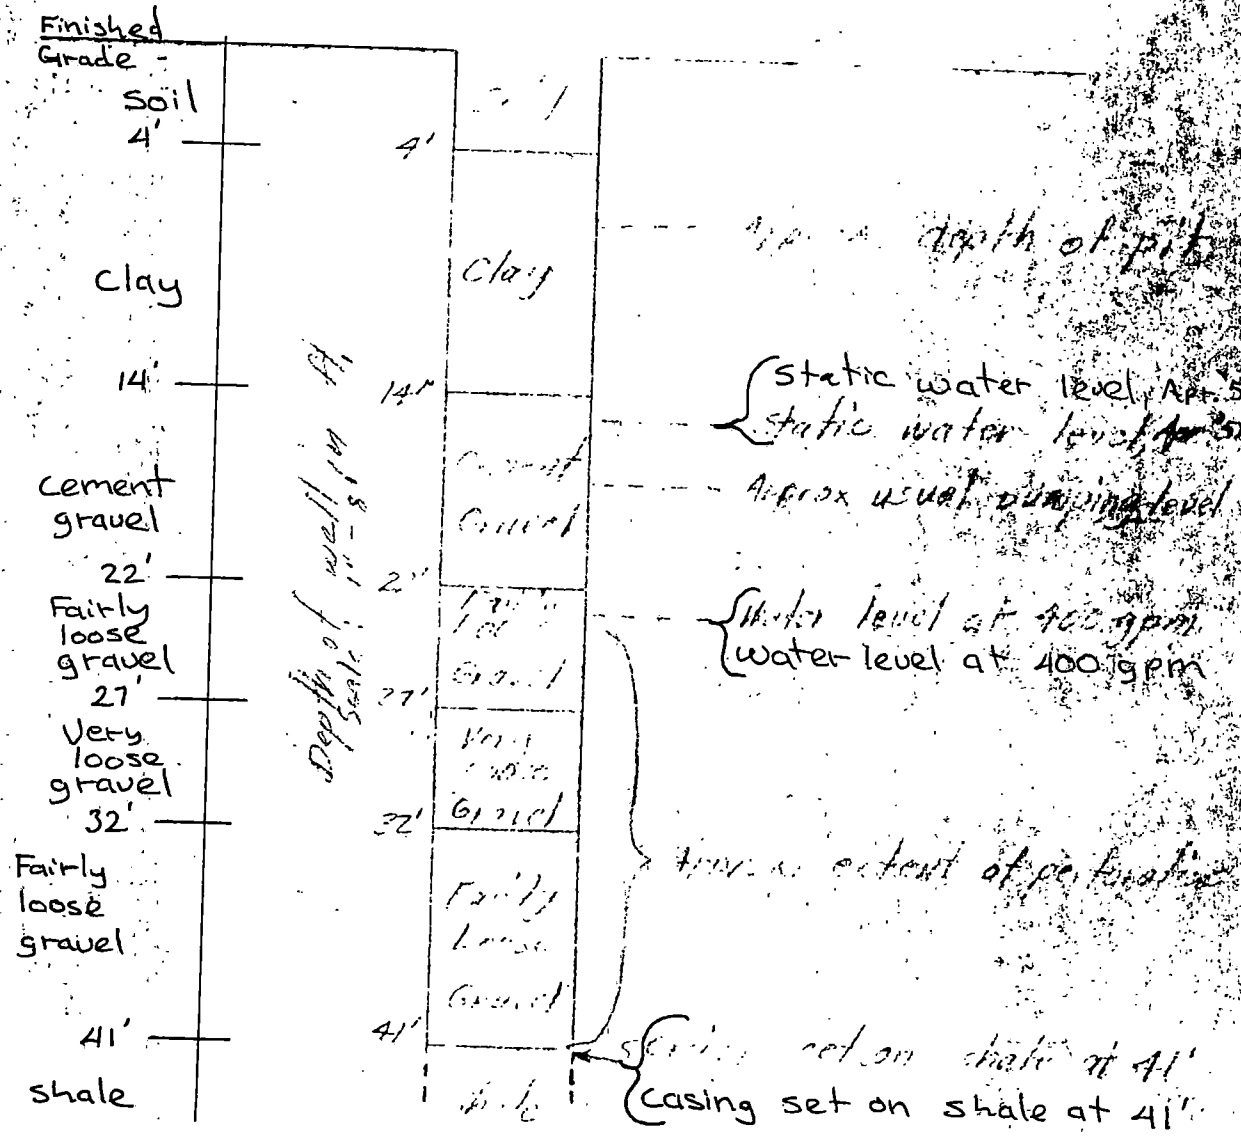 Finished
Grade -
Soil
4'
Clay
14'
Cement
gravel
22'
Fairly
loose
gravel
27'
Very
loose
gravel
32'
Fairly
loose
gravel
41'
shale
Depth of well in ft.
Scale: 1" = 8'
4'
Clay
14'
Cement
Gravel
Gravel
27'
Very
Loose
Gravel
32'
Fairly
Loose
Gravel
41'
depth of pit
Static water level, Apr.
Static water level, Apr
Approx usual pumping level
Water level at 400 gpm
water level at 400 gpm
extent of
set on shale at 41'
casing set on shale at 41'